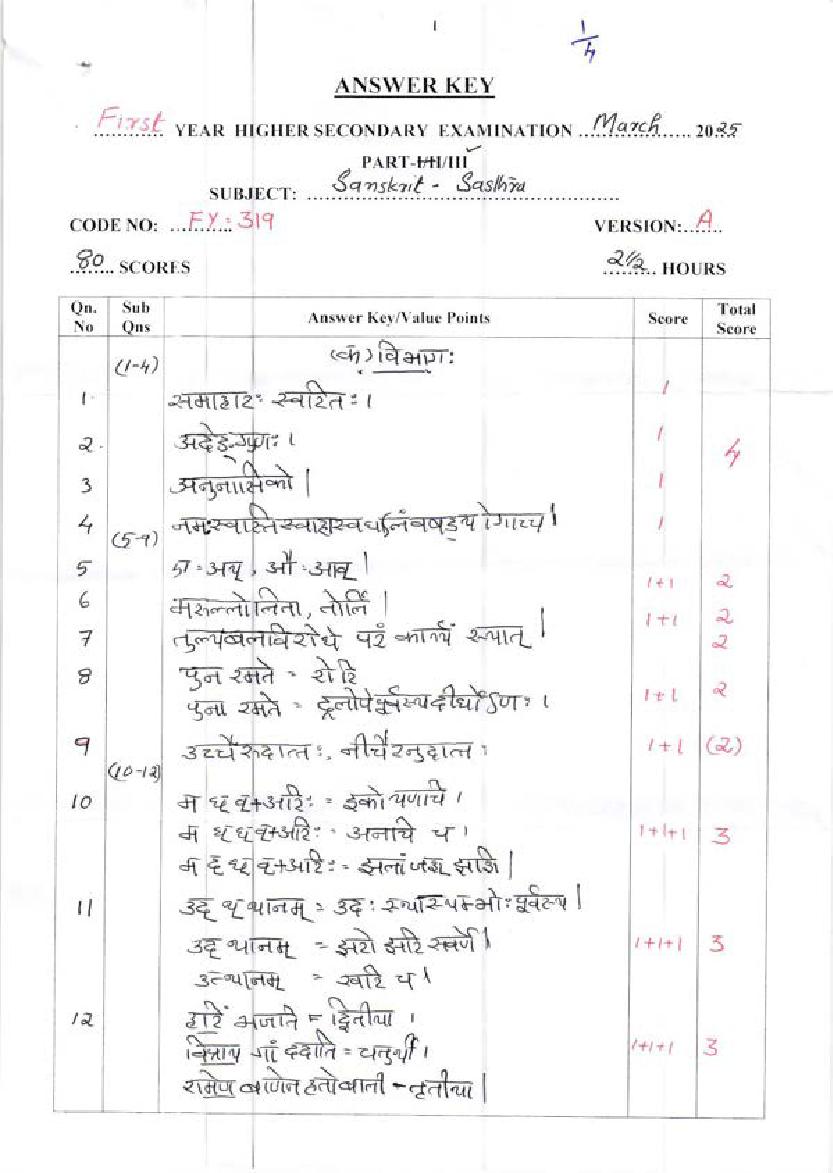 1
1/4
ANSWER KEY
First YEAR HIGHER SECONDARY EXAMINATION March 2025
PART-I/II/III
SUBJECT: Sanskrit - Sasthra
CODE NO: FY-319 VERSION: A
80 SCORES 2½ HOURS
Qn. No Sub Qns Answer Key/Value Points Score Total Score
(1-4) (क) विभागः
1. समाहारः स्वरितः। 1
2. अदेङ्गुणः। 1 4
3 अनुनासिको। 1
4 नमःस्वस्तिस्वाहास्वधालंवषड्योगाच्च। 1
(5-9)
5 ए-अय्, औ-आव्। 1+1 2
6 मरुल्लोनिता, तोर्लि। 1+1 2
7 तुल्यबलविरोधे परं कार्यं स्यात्। 2
8 पुन रमते = रोरि
पुना रमते = ढ्रलोपेपूर्वस्यदीर्घोऽणः। 1+1 2
9 उच्चैरुदात्तः, नीचैरनुदात्तः 1+1 (2)
(10-12)
10 म ध् व्+अरिः = इको यणचि।
म ध् ध् व्+अरिः = अनचि च। 1+1+1 3
म द् ध् व्+अरिः = झलां जश् झशि।
11 उद् थ् थानम् = उदः स्थास्तम्भोः पूर्वस्य।
उद् थानम् = झरो झरि सवर्णे। 1+1+1 3
उत्थानम् = खरि च।
12 हरिं भजति = द्वितीया।
विप्राय गां ददाति = चतुर्थी। 1+1+1 3
रामेण बाणेन हतो वाली - तृतीया।